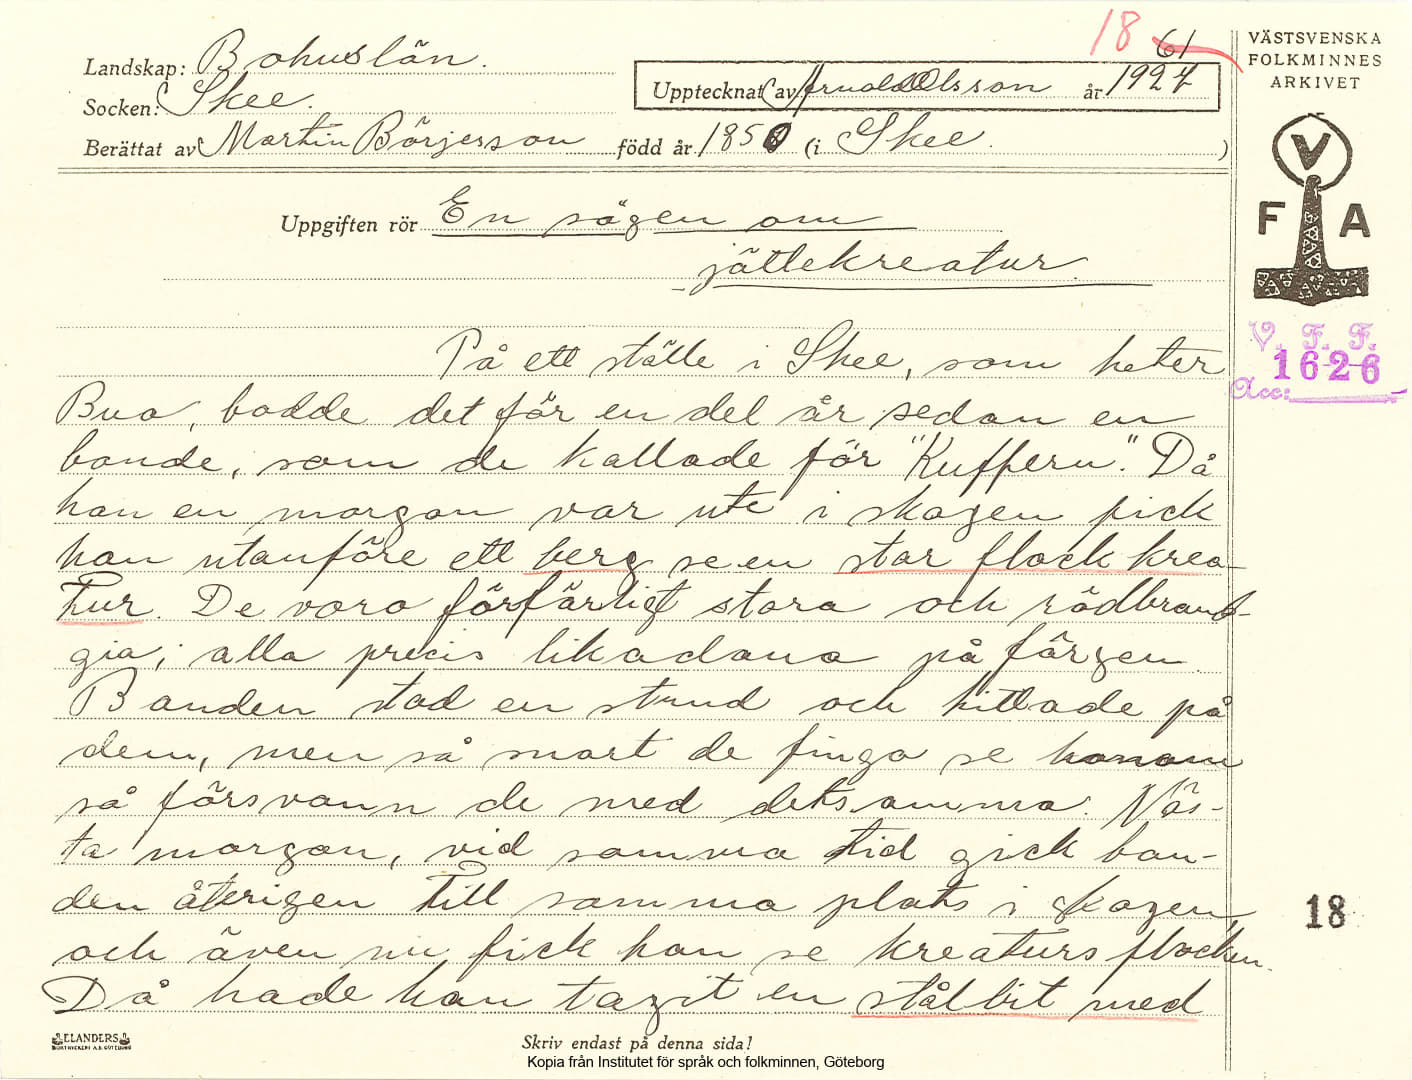 18 61
Landskap: Bohuslän.
Socken: Skee.
Upptecknat av Arnold Olsson år 1927
Berättat av Martin Börjesson född år 1850 (i Skee.)
VÄSTSVENSKA
FOLKMINNES
ARKIVET
V
F A
V. F. F.
1626
Acc:
Uppgiften rör En sägen om
jättekreatur.
På ett ställe i Skee, som heter
Bua, bodde det för en del år sedan en
bonde, som de kallade för "Kuffern". Då
han en morgon var ute i skogen fick
han utanföre ett berg se en stor flock krea-
tur. De voro förfärligt stora och rödbrand-
gia; alla precis likadana på färgen.
Bonden stod en stund och tittade på
dem, men så snart de fingo se honom
så försvann de med detsamma. Näs-
ta morgon, vid samma tid gick bon-
den återigen till samma plats i skogen
och även nu fick han se kreatursflocken.
Då hade han tagit en stålbit med
18
ELANDERS
BOKTRYCKERI A.B. GÖTEBORG
Skriv endast på denna sida!
Kopia från Institutet för språk och folkminnen, Göteborg